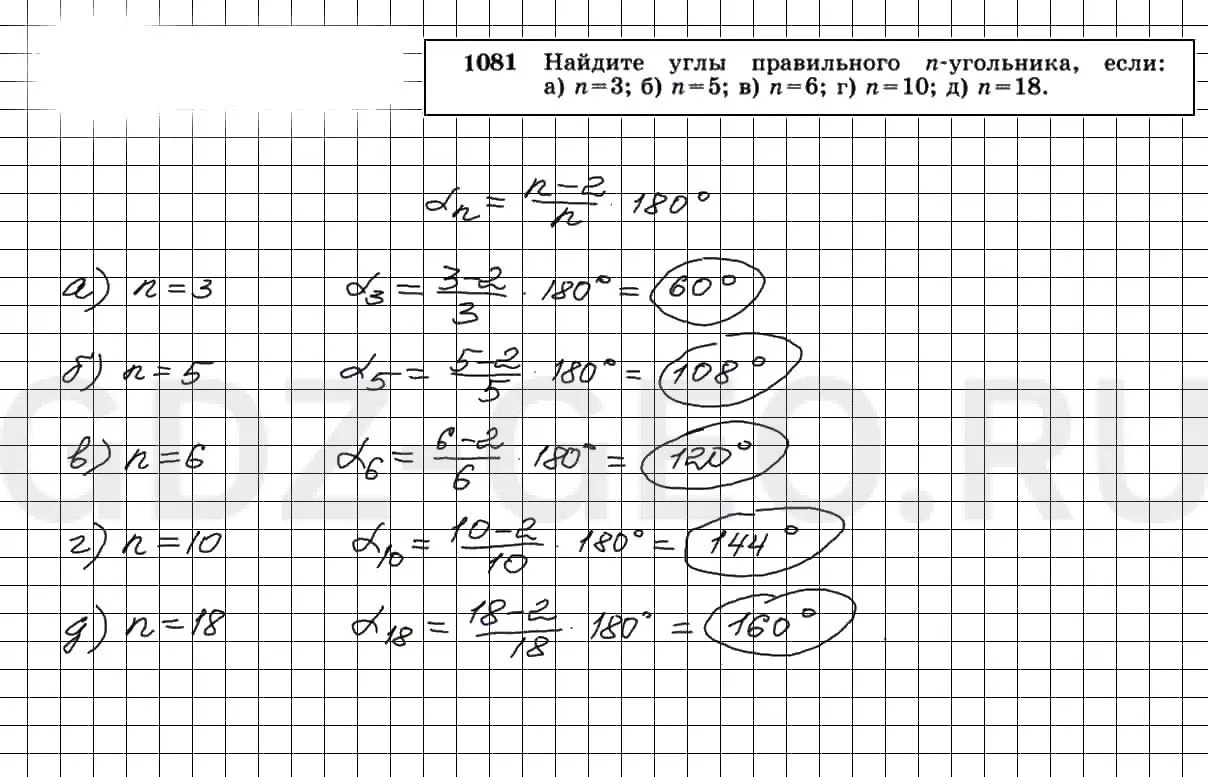 1081 Найдите углы правильного n-угольника, если:
а) n=3; б) n=5; в) n=6; г) n=10; д) n=18.
αₙ = (n-2)/n · 180°
а) n=3 α₃ = (3-2)/3 · 180° = 60°
б) n=5 α₅ = (5-2)/5 · 180° = 108°
в) n=6 α₆ = (6-2)/6 · 180° = 120°
г) n=10 α₁₀ = (10-2)/10 · 180° = 144°
д) n=18 α₁₈ = (18-2)/18 · 180° = 160°
GDZ-GEO.RU